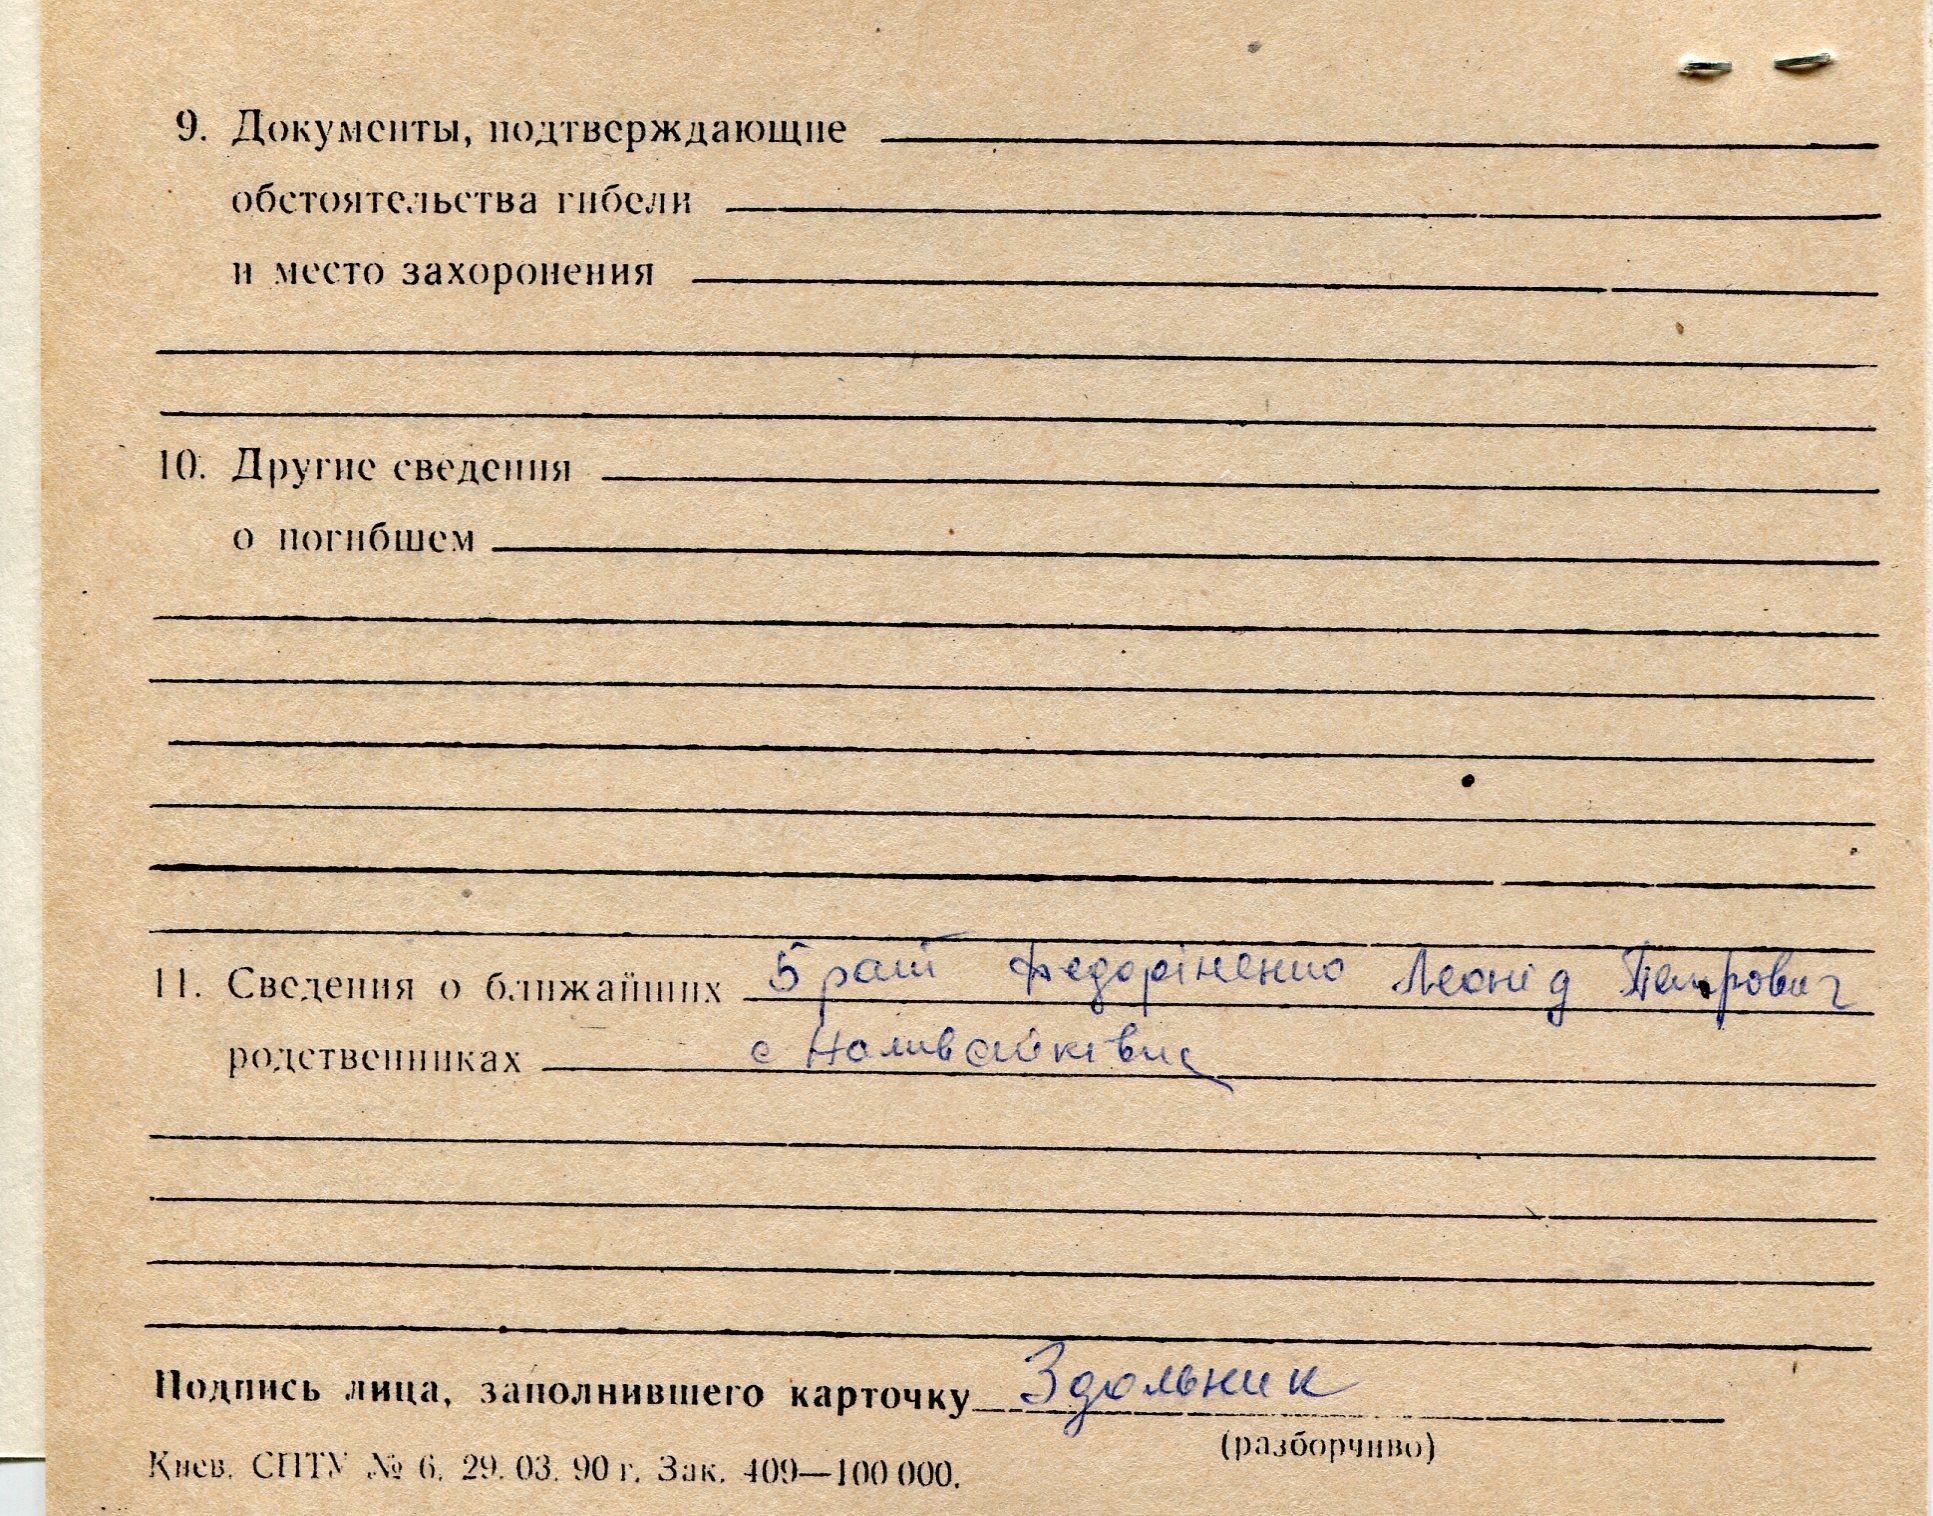 9. Документы, подтверждающие
обстоятельства гибели
и место захоронения
10. Другие сведения
о погибшем
11. Сведения о ближайших Брат Федоріненко Леонід Петрович
родственниках с Наливайківка
Подпись лица, заполнившего карточку Здольник
(разборчиво)
Киев. СПТУ № 6. 29. 03. 90 г. Зак. 409—100 000.